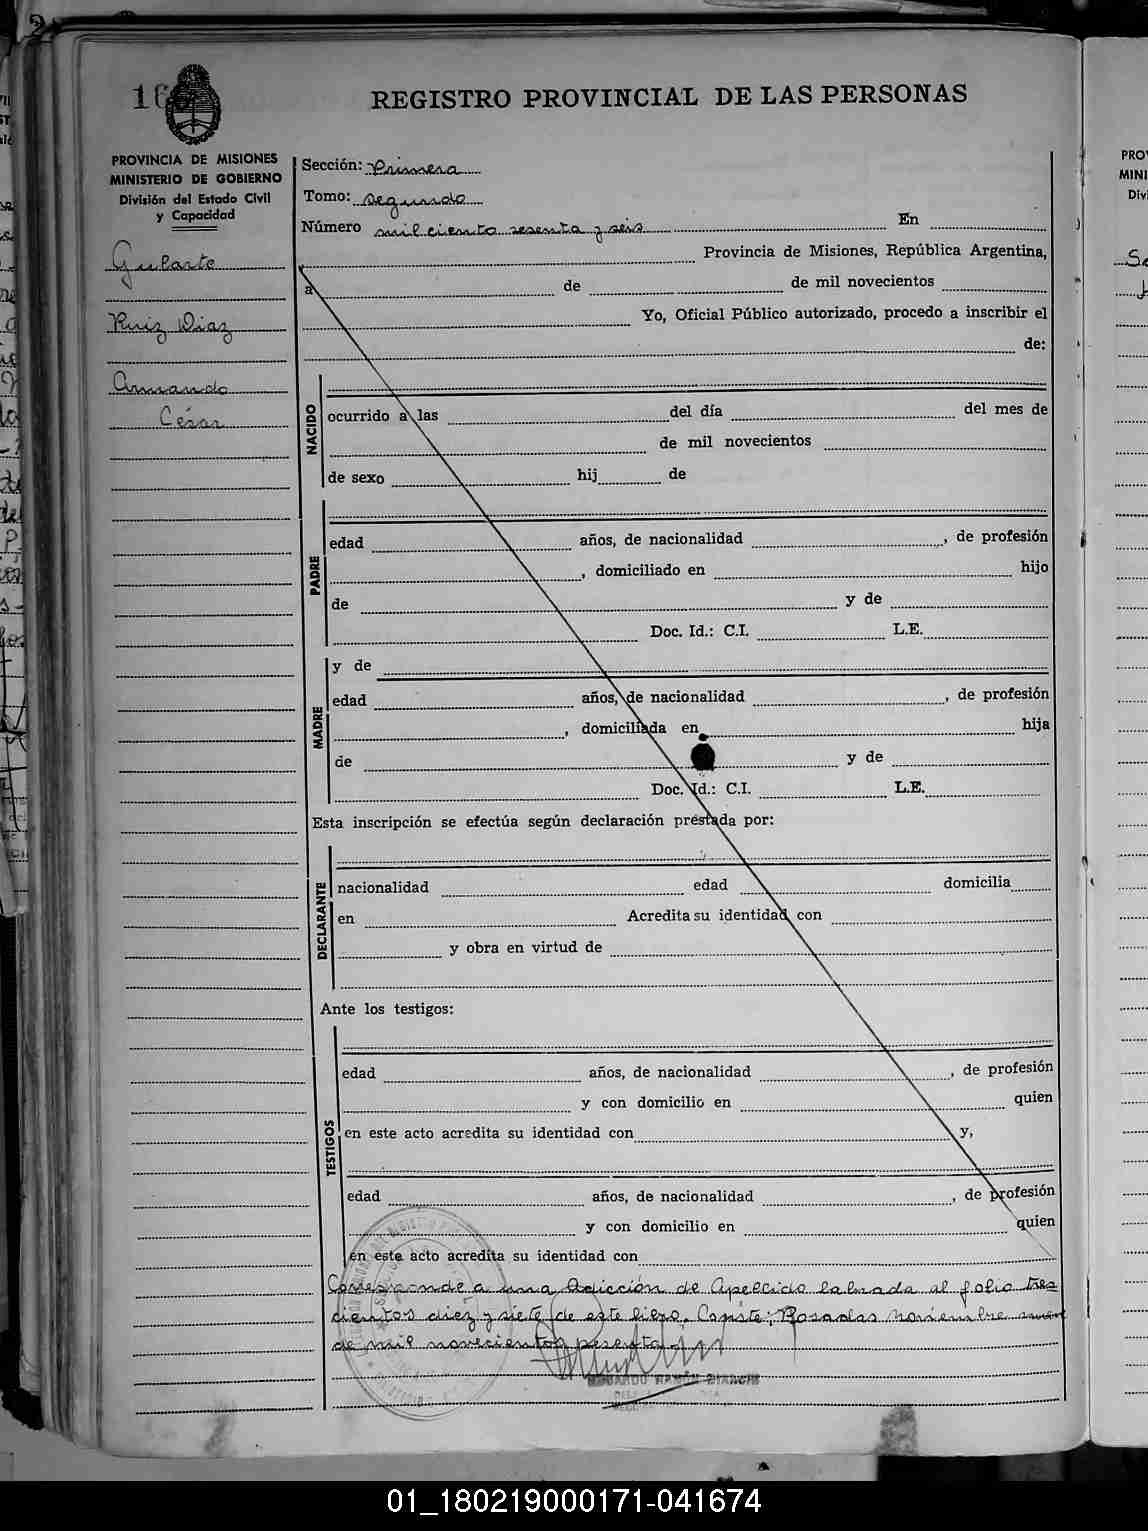 16
REGISTRO PROVINCIAL DE LAS PERSONAS
PROVINCIA DE MISIONES
MINISTERIO DE GOBIERNO
División del Estado Civil
y Capacidad
Gularte
Ruiz Diaz
Armando
César
Sección: Primera
Tomo: segundo
Número mil ciento sesenta y seis En
Provincia de Misiones, República Argentina,
a de de mil novecientos
Yo, Oficial Público autorizado, procedo a inscribir el
de:
NACIDO
ocurrido a las del día del mes de
de mil novecientos
de sexo hij de
PADRE
edad años, de nacionalidad , de profesión
, domiciliado en hijo
de y de
Doc. Id.: C.I. L.E.
MADRE
y de
edad años, de nacionalidad , de profesión
, domiciliada en hija
de y de
Doc. Id.: C.I. L.E.
Esta inscripción se efectúa según declaración prestada por:
DECLARANTE
nacionalidad edad domicilia
en Acredita su identidad con
y obra en virtud de
Ante los testigos:
TESTIGOS
edad años, de nacionalidad , de profesión
y con domicilio en quien
en este acto acredita su identidad con y,
edad años, de nacionalidad , de profesión
y con domicilio en quien
en este acto acredita su identidad con
Corresponde a una Adicción de Apellido labrada al folio tres
cientos diez y siete de este libro. Conste: Posadas noviembre
de mil novecientos sesenta
EDUARDO RAMÓN BIANCHI
01_180219000171-041674